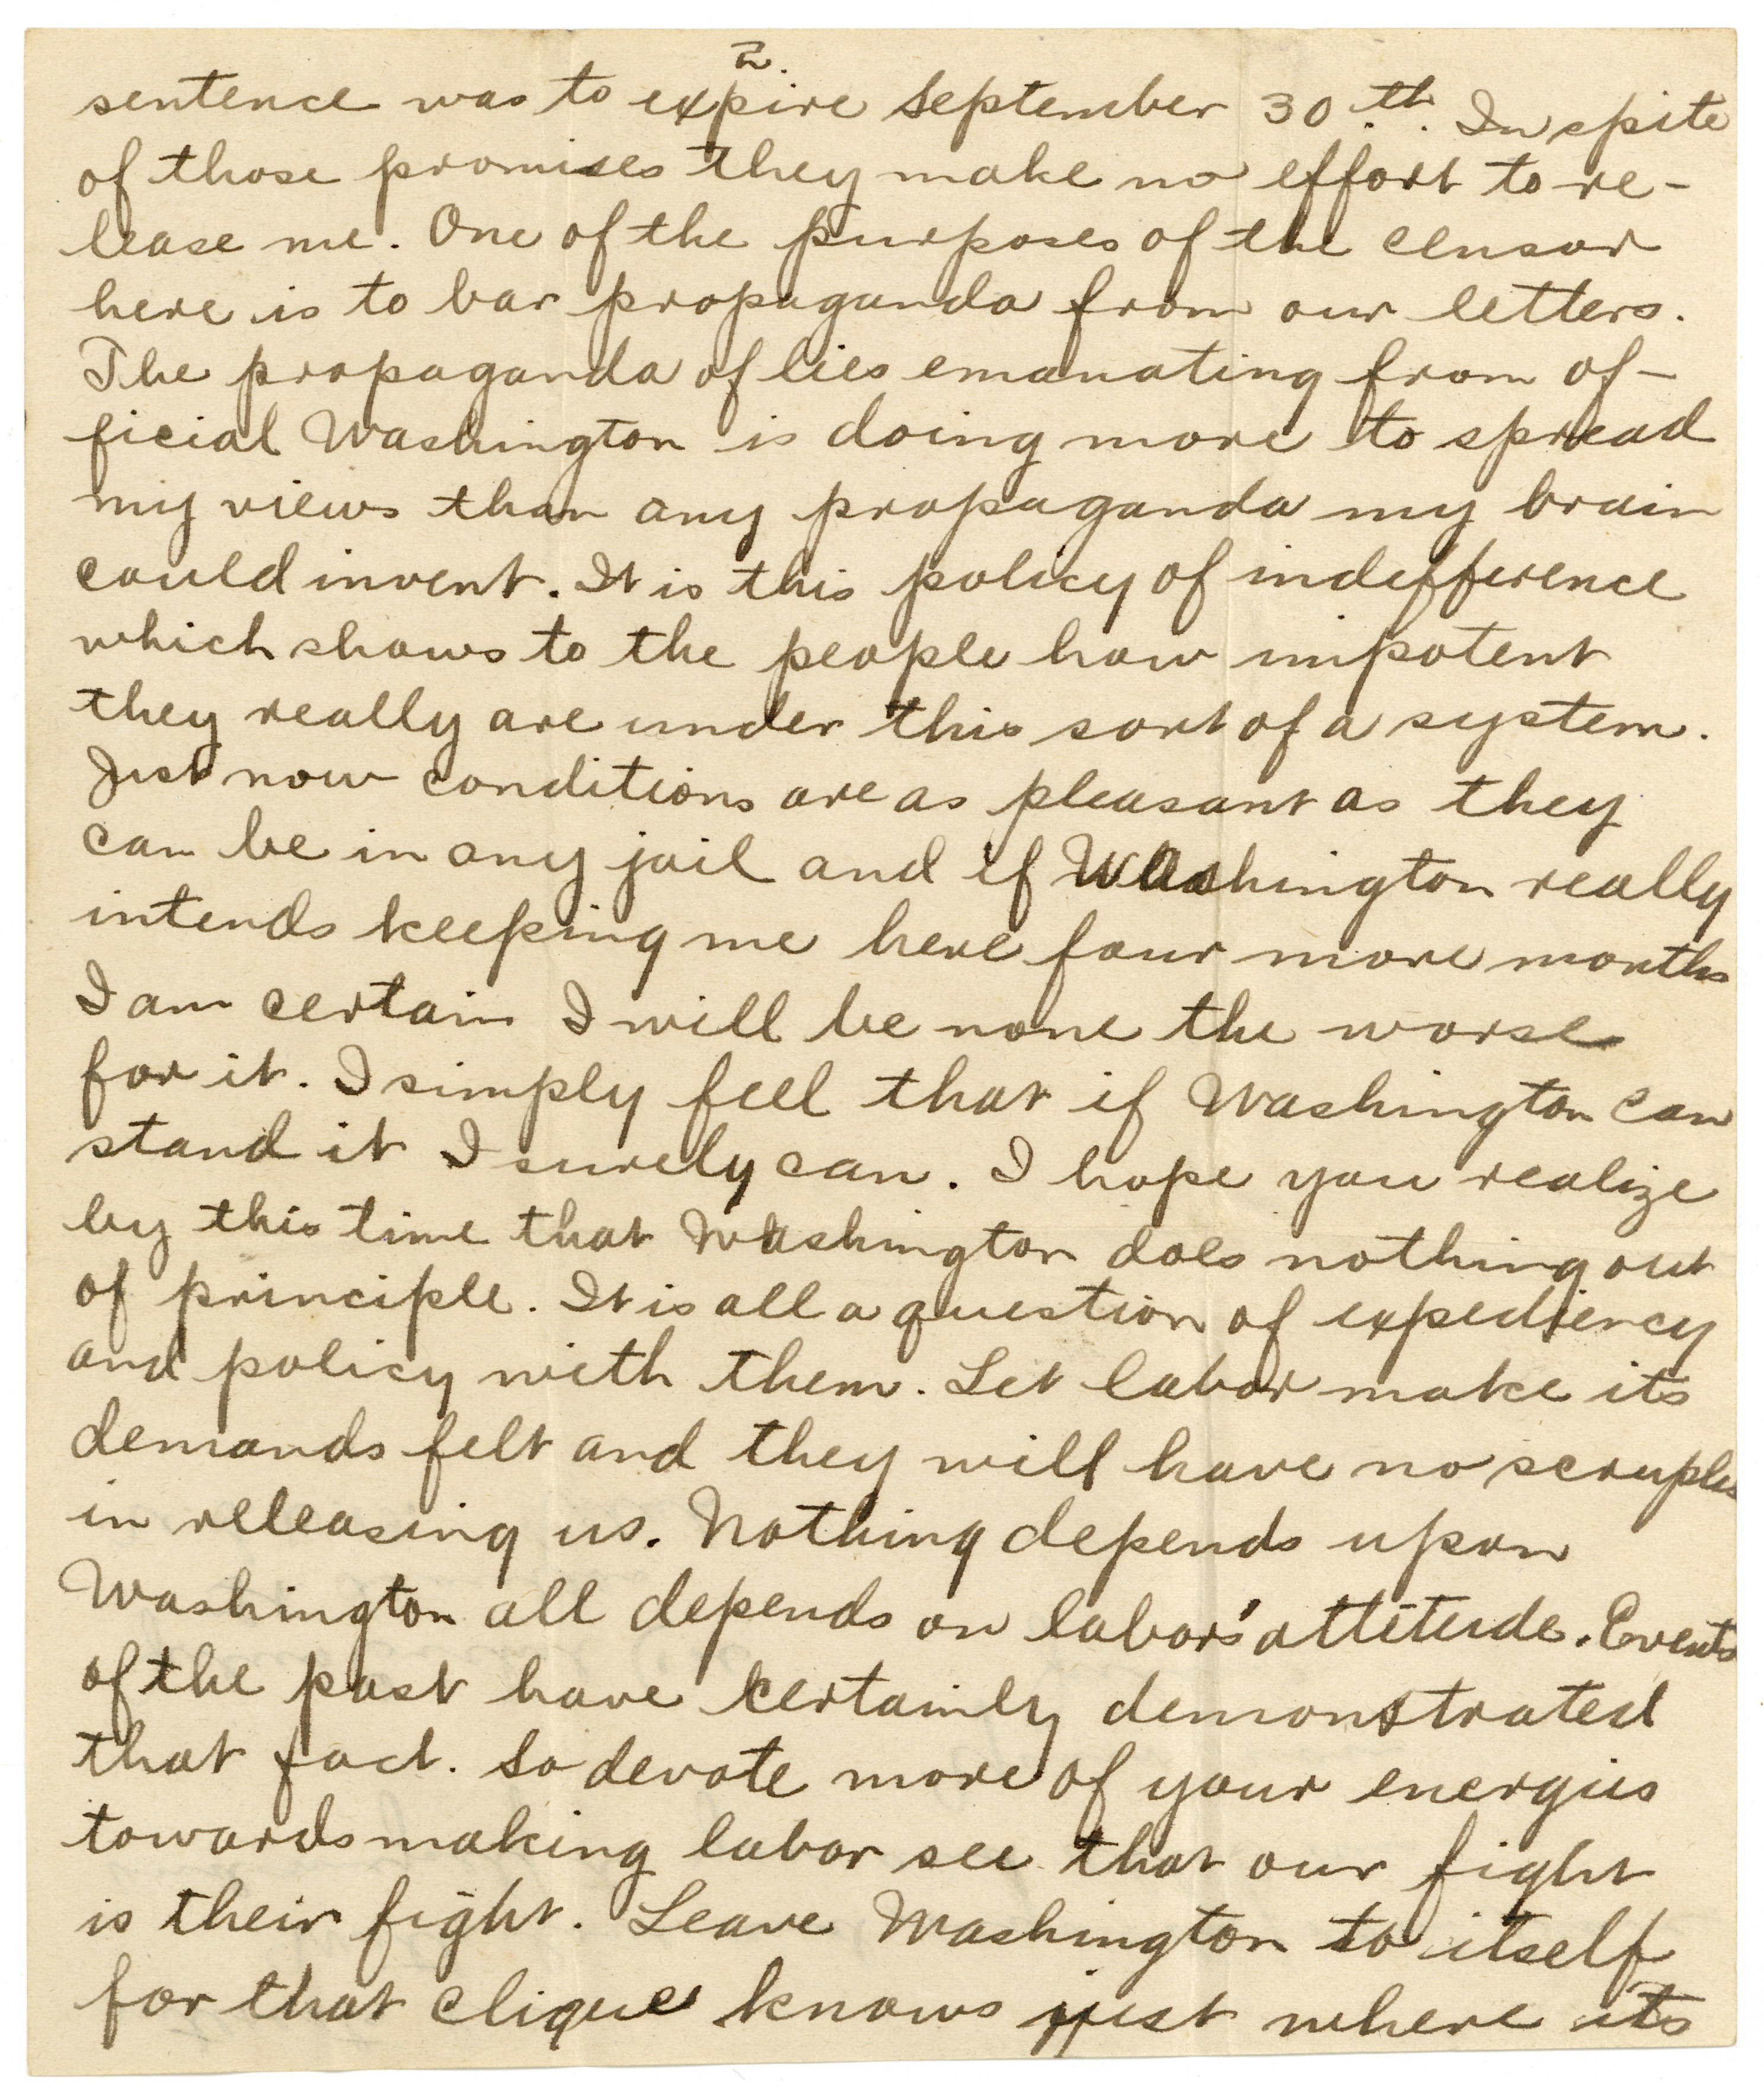 2.
sentence was to expire September 30th. In spite
of those promises they make no effort to re-
lease me. One of the purposes of the censor
here is to bar propaganda from our letters.
The propaganda of lies emanating from of-
ficial Washington is doing more to spread
my views than any propaganda my brain
could invent. It is this policy of indefference
which shows to the people how impotent
they really are under this sort of a system.
Just now conditions are as pleasant as they
can be in any jail and if Washington really
intends keeping me here four more months
I am certain I will be none the worse
for it. I simply feel that if Washington can
stand it I surely can. I hope you realize
by this time that Washington does nothing out
of principle. It is all a question of expediency
and policy with them. Let labor make its
demands felt and they will have no scruples
in releasing us. Nothing depends upon
Washington all depends on labors' attitude. Events
of the past have certainly demonstrated
that fact. So devote more of your energies
towards making labor see that our fight
is their fight. Leave Washington to itself
for that clique knows just where its